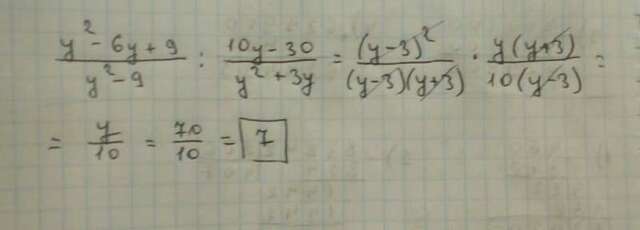 (y² - 6y + 9)/(y² - 9) : (10y - 30)/(y² + 3y) = (y-3)²/((y-3)(y+3)) · y(y+3)/(10(y-3)) =
= y/10 = 70/10 = 7